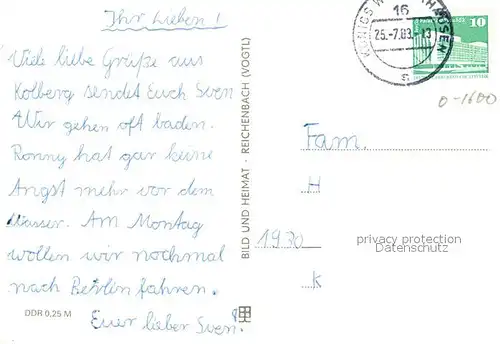 Ihr Lieben!
Viele liebe Grüße aus
Kolberg sendet Euch Sven
Wir gehen oft baden.
Ronny hat gar keine
Angst mehr vor dem
Wasser. Am Montag
wollen wir nochmal
nach Berlin fahren.
Euer lieber Sven.
DDR 0,25 M
BILD UND HEIMAT · REICHENBACH (VOGTL)
16
25.-7.83.-13
s
10
0-1600
Fam.
H
1930
K
privacy protection
Datenschutz